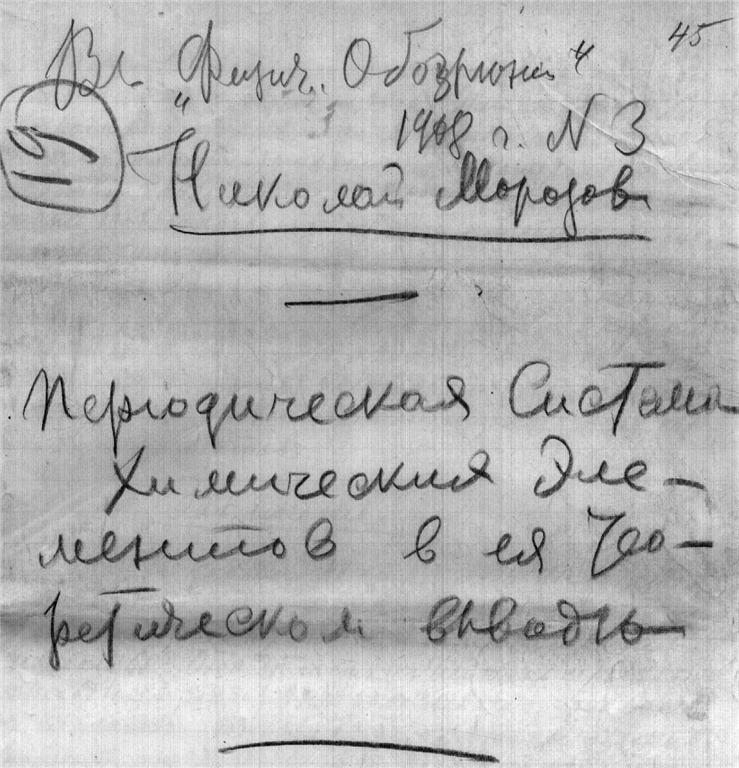 45
Въ „Физич. Обозрѣніи“
1908 г. N 3
19
Николай Морозовъ
Періодическая Система
Химическихъ Эле-
ментов в ея Тео-
ретическом выводѣ